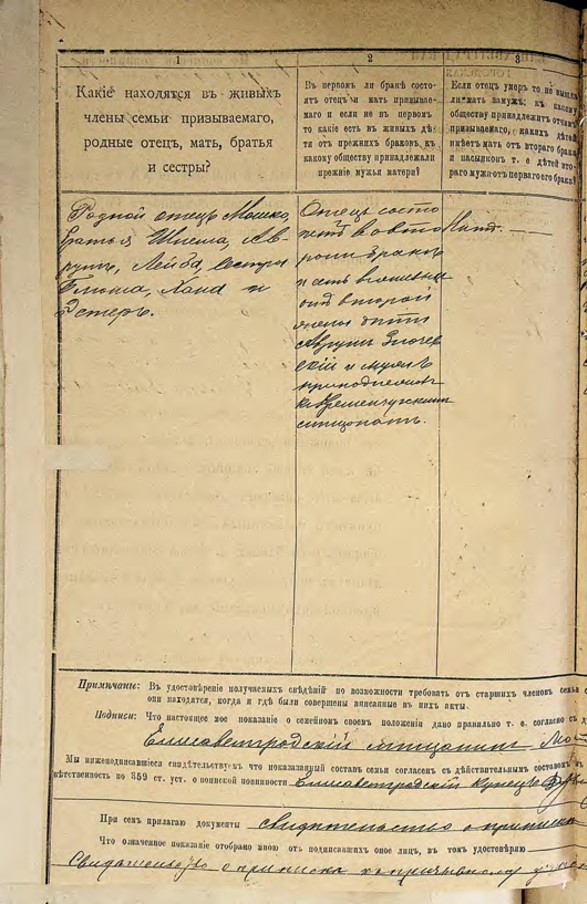 1
Какіе находятся въ живыхъ
члены семьи призываемаго,
родные отецъ, мать, братья
и сестры?
2
Въ первомъ ли бракѣ состо-
итъ отецъ и мать призывае-
маго и если не въ первомъ
то какіе есть въ живыхъ дѣ-
ти отъ прежнихъ браковъ, къ
какому обществу принадлежали
прежніе мужья матери?
3
Если отецъ умеръ то не вышла
ли мать замужъ: къ какому
обществу принадлежитъ отчимъ
призываемаго, какихъ дѣтей
имѣетъ мать отъ втораго брака
и пасынковъ т. е. дѣтей вто-
раго мужа отъ перваго его брака?
Родной отецъ Мошко,
братья Шлема, Ав-
румъ, Лейба, сестры
Блюма, Хана и
Эстеръ.
Отецъ состо
итъ во вто
ромъ бракѣ
и есть
отъ второй
жены дѣти
Аврумъ
скій и
къ Кременчугскимъ
мѣщанамъ.
Нѣтъ.
Примѣчанье: Въ удостовѣреніе получаемыхъ свѣдѣній по возможности требовать отъ старшихъ членовъ семьи
они находятся, когда и гдѣ были совершены вписанные въ нихъ акты.
Подписи: Что настоящее мое показаніе о семейномъ своемъ положеніи дано правильно т. е. согласно съ д
Елисаветградскій мѣщанинъ Мо
Мы нижеподписавшіеся свидѣтельствуемъ что показанный составъ семьи согласенъ съ дѣйствительнымъ составомъ
вѣтственность по 359 ст. уст. о воинской повинности Елисаветградскій купецъ
При семъ прилагаю документы свидѣтельство о припискѣ
Что означенное показаніе отобрано мною отъ подписавшихъ оное лицъ, въ томъ удостовѣряю
Свидѣтельство о припискѣ къ призывному